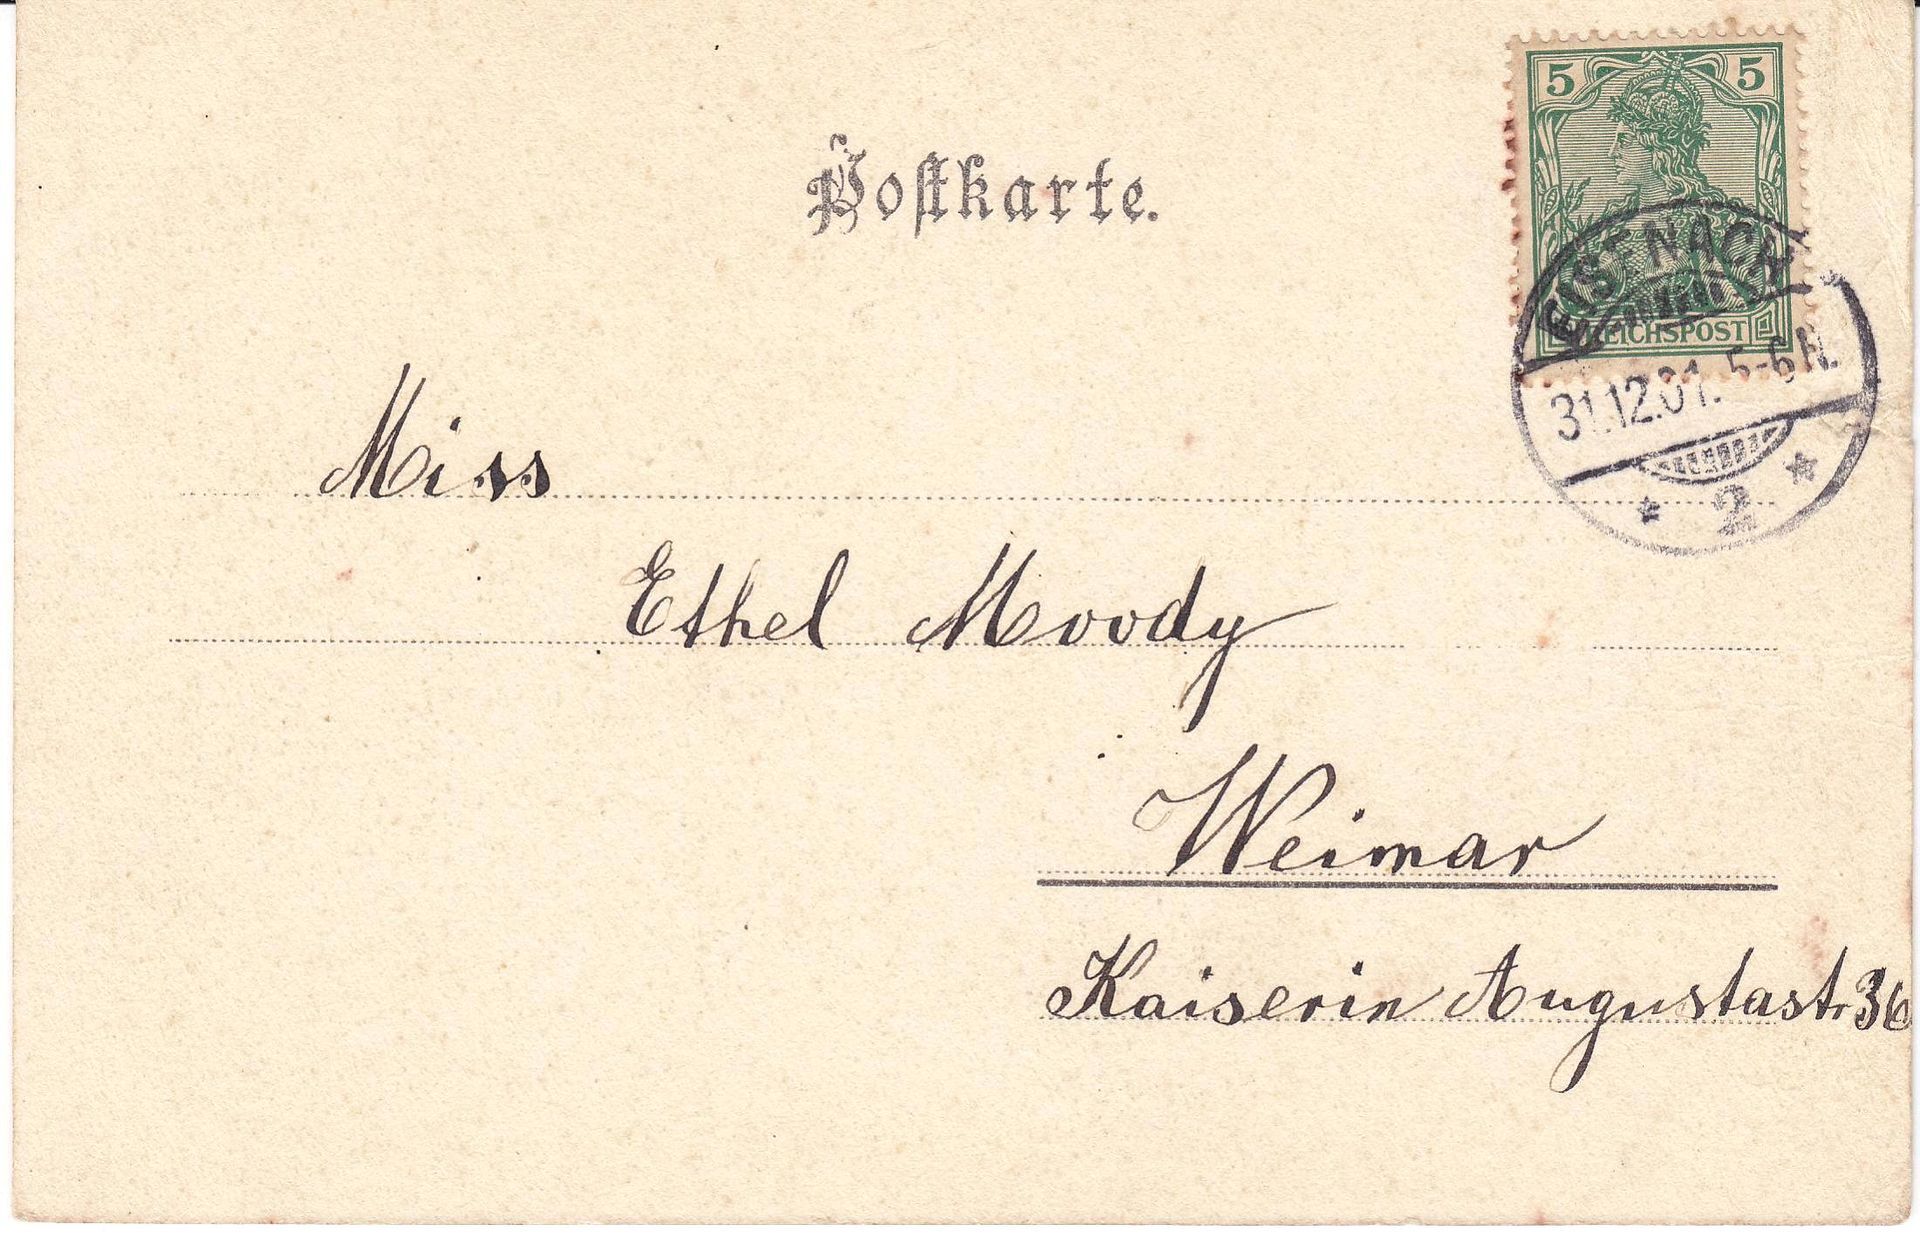 5 5
Postkarte.
EISENACH
REICHSPOST
31.12.01. 5-6 N.
* 2 *
Miss
Ethel Moody
Weimar
Kaiserin Augustastr 36